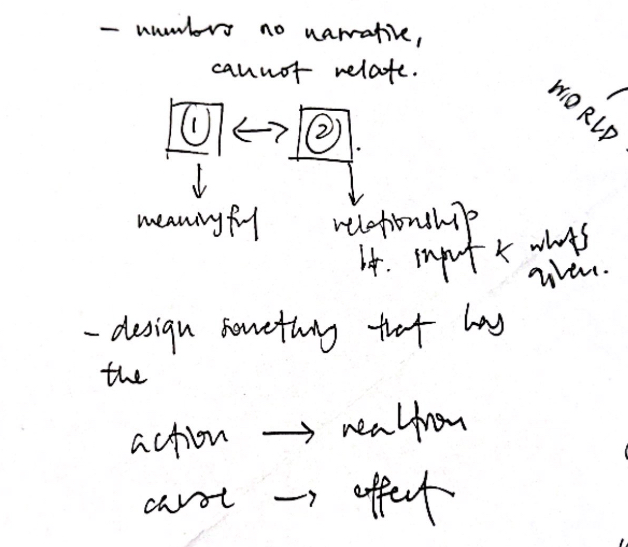 - numbers no narrative,
cannot relate.
WORLD
① ↔ ②.
↓ ↓
meaningful relationship
bt. input & what's
given.
- design something that has
the
action → reaction
cause → effect